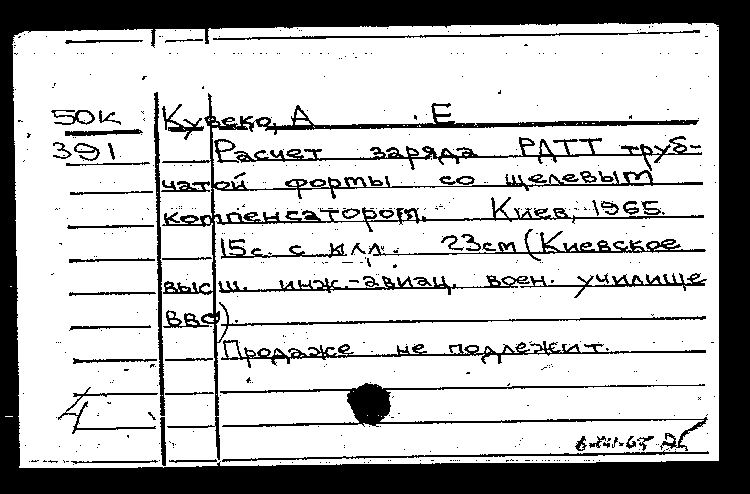 50К Кувеко, А Е
391 Расчет заряда РДТТ труб-
чатой формы со щелевым
компенсатором. Киев, 1965.
15с. с илл. 23см (Киевское
высш. инж.-авиац. воен. училище
ВВС).
Продаже не подлежит.
4